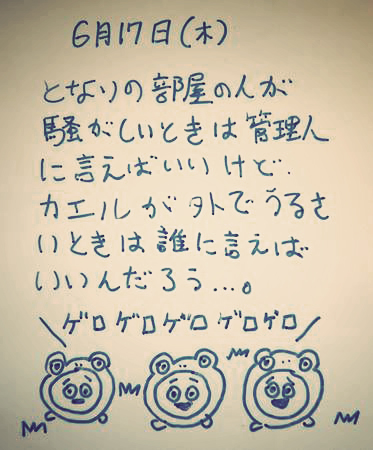 6月17日(木)
となりの部屋の人が
騒がしいときは管理人
に言えばいいけど、
カエルが外でうるさ
いときは誰に言えば
いいんだろう…。
ゲロゲロゲロゲロゲロ